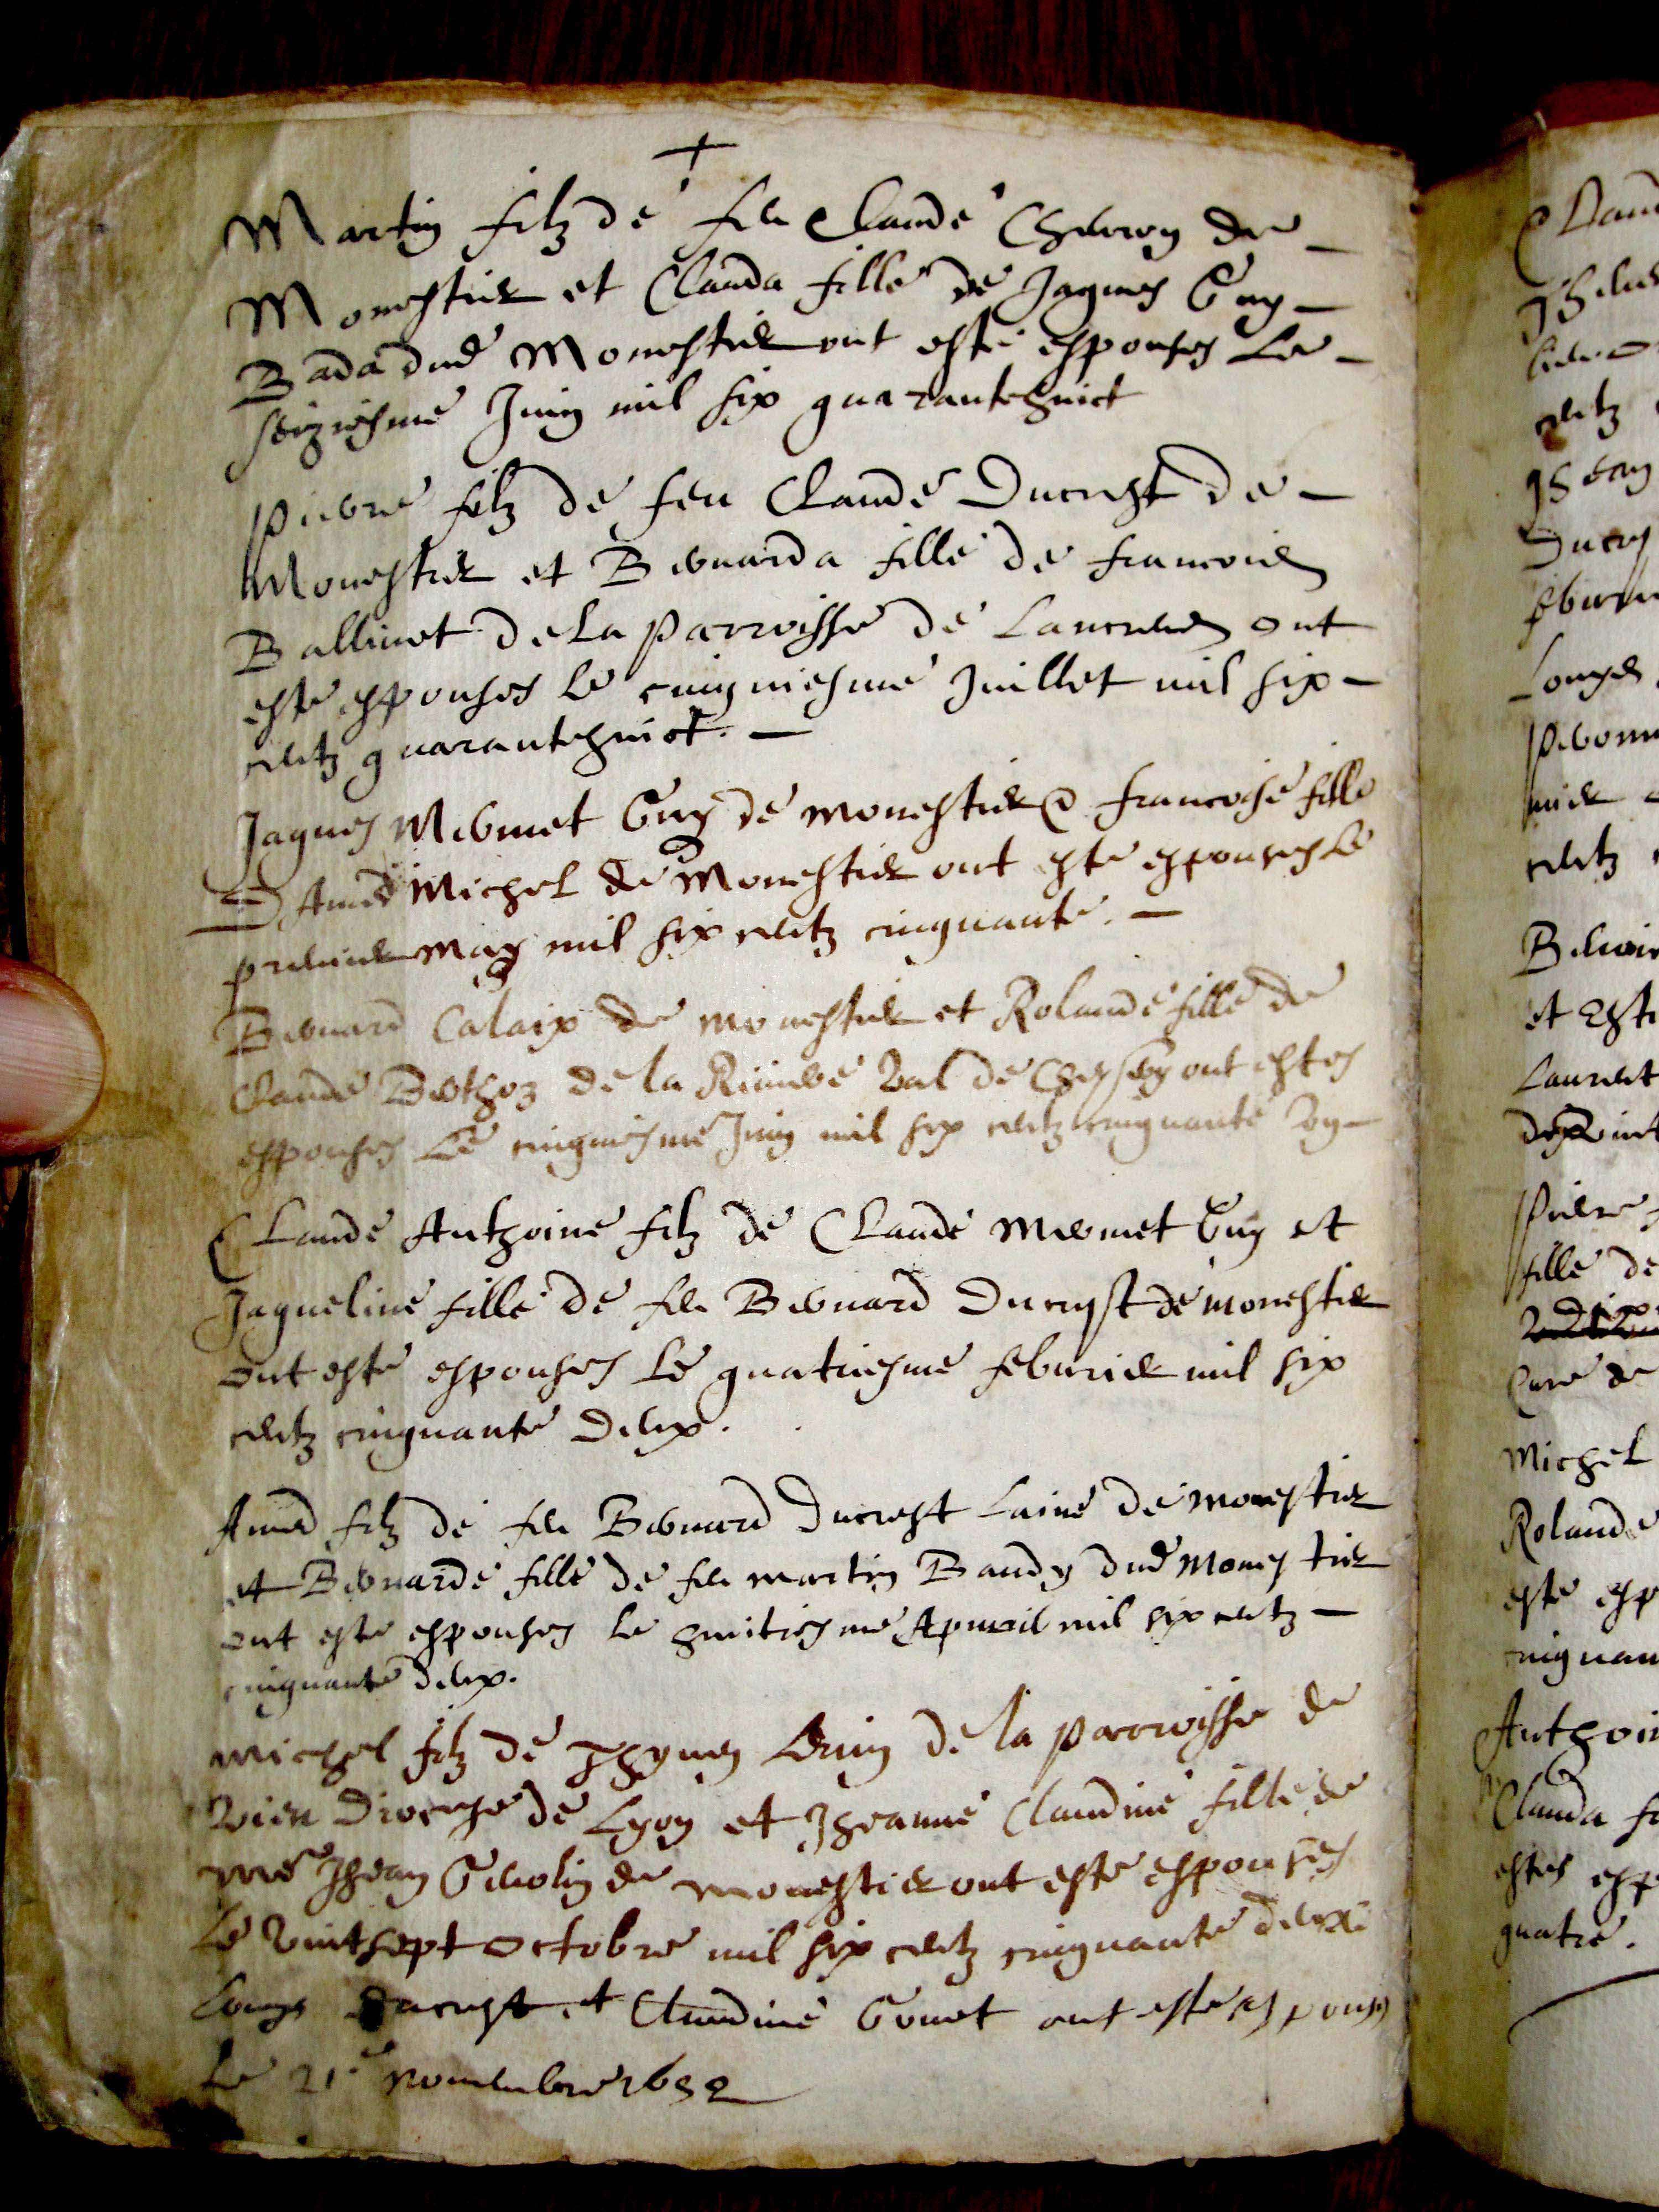 +
Martin filz de feu Claude Chevron de
Monestier et Clauda fille de Jaques Guy
Bada dud Monestier ont esté espouses Le
seiziesme Juin mil six quarantehuict
Pierre filz de feu Claude Ducrest de
Monestier et Bernarda fille de francois
Ballinet de La parroisse de ont
esté espouses le cinquiesme Juillet mil six
centz quarantehuict.
Jaques Mermet Guy de monestier & francoise fille
D Amed Michel de Monestier ont esté espouses Le
premier may mil six centz cinquante.
Bernard Calaix de monestier et Rolande fille de
Claude Berthoz de la Riviere val de ont estes
espouses Le cinquiesme Juin mil six centz cinquante un
Claude Anthoine filz de Claude mermet Guy et
Jaqueline fille de feu Bernard Ducrest de monestier
ont esté espouses Le quatriesme febvrier mil six
centz cinquante deux.
Amed filz de feu Bernard Ducrest Laine de monestier
et Bernarde fille de feu martin Baudy dud Monestier
ont esté espouses le huitiesme Apvril mil six centz
cinquante deux.
Michel filz de de la parroisse de
Diocese de Lyon et Jheanne Claudine fille de
me Jhean de monestier ont esté espouses
Le vintsept octobre mil six centz cinquante deux
Louys Ducrest et Claudine ont esté espouses
Le 21e novembre 1652
Claud
centz
Ducres
Louys
centz
et
Laurent
Pierre
fille de
Cure de
Michel
Rolande
esté esp
cinquan
Anthoin
Clauda fi
estés esp
quatre.